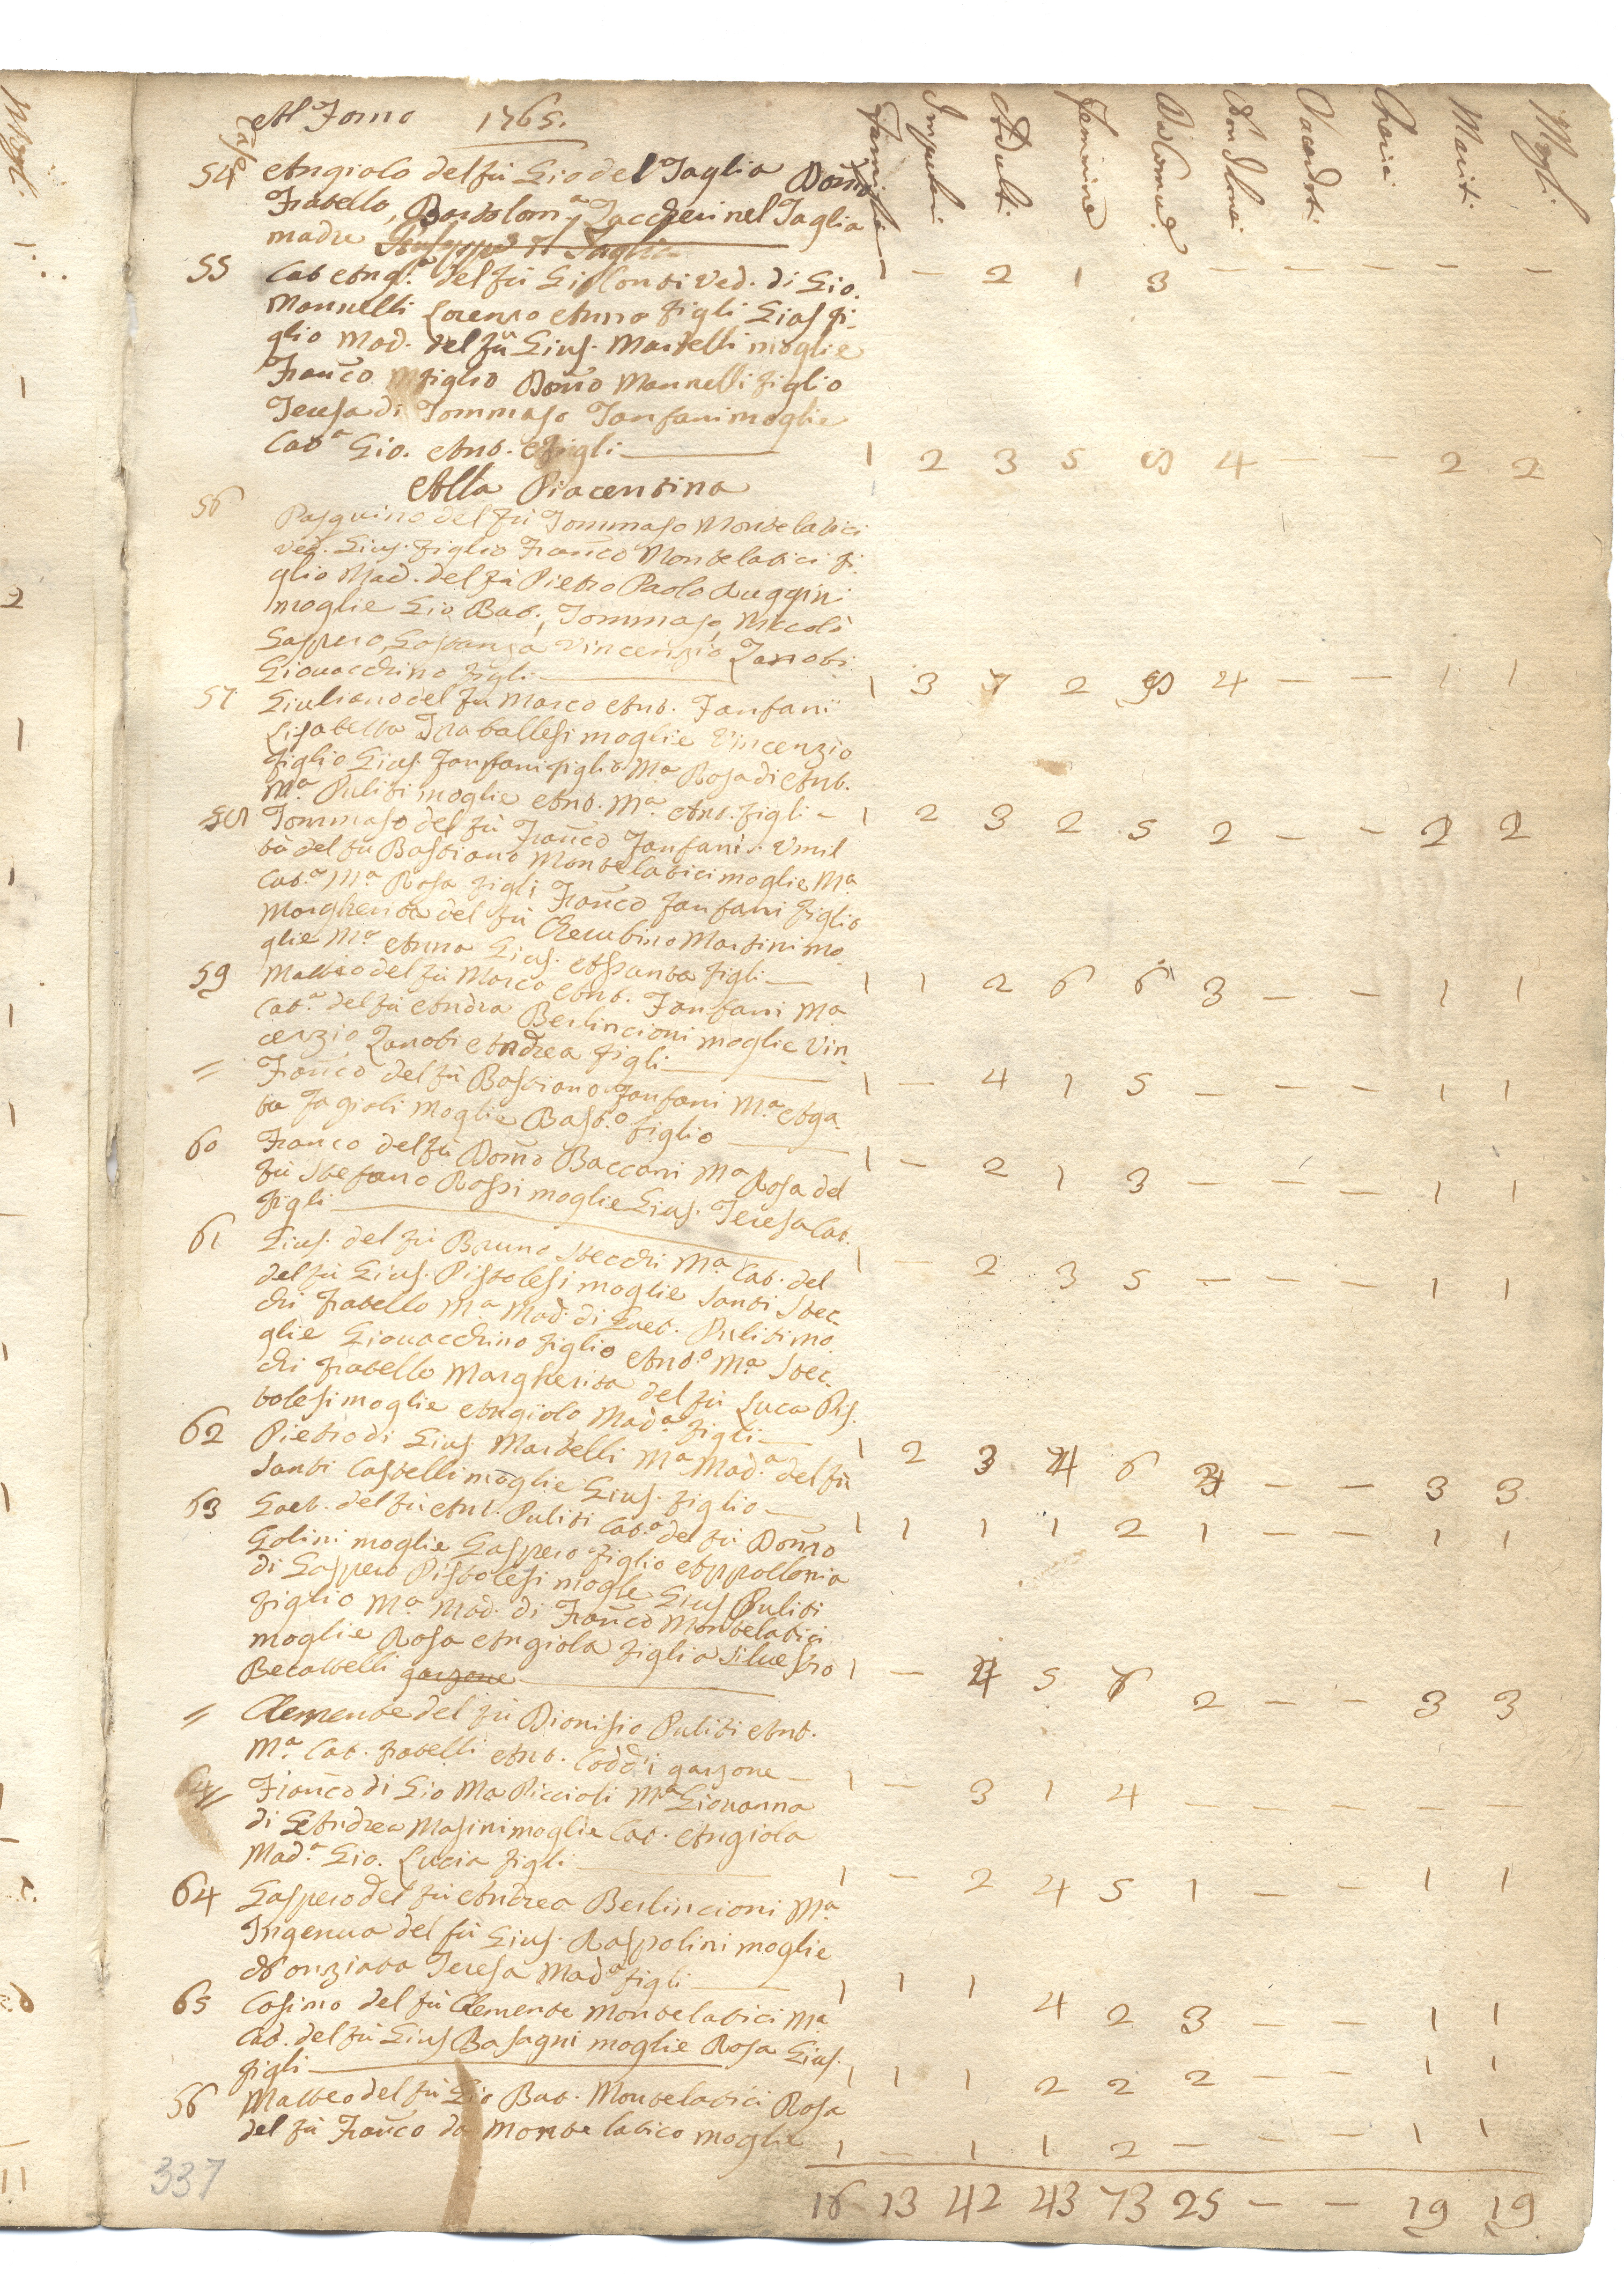 Al Forno 1765.
Case
Famiglie Impuberi Adulti Femmine Da Comun.e Non Idonei Sacerdoti Cherici Mariti Mogli
54 Angiolo del fù Gio del Taglia Dom.co
Fratello, Bartolom.a Zaccheri nel Taglia
madre 1 — 2 1 3 — — — — —
55 Cat Ang.a del fù Gio Conti Ved. di Gio.
Mannelli Lorenzo Anna figli Gias fi-
glio Mad. del fù Gius. Martelli moglie
Franco figlio Dom.o Mannelli figlio
Teresa di Tommaso Fanfani moglie
Cat.a Gio. Ant. figli 1 2 3 5 8 4 — — 2 2
Alla Piacentina
56 Pasquino del fù Tommaso Montelatici
ved. Gius. figlio Franco Montelatici fi-
glio Mad. del fù Pietro Paolo Ruggini
moglie Gio Bat., Tommaso, Niccolò
Gaspero, Gostanza Vincenzio Zanobi
Giovacchino figli 1 3 7 2 9 4 — — 1 1
57 Giuliano del fù Marco Ant. Fanfani
Lisabetta Traballesi moglie Vincenzio
figlio Gius. Fanfani figlio M.a Rosa di Ant.
M.a Puliti moglie Ant. M.a Ant. figli — 1 2 3 2 5 2 — — 2 2
58 Tommaso del fù Franco Fanfani Umil
tà del fù Bastiano Montelatici moglie M.a
Cat.a M.a Rosa figli Franco Fanfani figlio
Margherita del fù Cherubino Martini mo
glie M.a Anna Gius. Assunta figli 1 1 2 6 6 3 — — 1 1
59 Matteo del fù Marco Ant. Fanfani M.a
Cat.a del fù Andrea Berlincioni moglie Vin
cenzio Zanobi Andrea figli 1 — 4 1 5 — — — 1 1
= Franco del fù Bastiano Fanfani M.a Aga
ta Fagioli moglie Bast.o figlio 1 — 2 1 3 — — — 1 1
60 Franco del fù Dom.o Baccani M.a Rosa del
fù Stefano Rossi moglie Gius. Teresa Cat.
figli 1 — 2 3 5 — — — 1 1
61 Gius. del fù Bruno Stecchi M.a Cat. del
del fù Gius. Pistolesi moglie Santi Stec
chi fratello M.a Mad. di Gaet. Puliti mo
glie Giovacchino figlio Ant.o M.a Stec
chi fratello Margherita del fù Luca Pis
tolesi moglie Angiolo, Mad.a figli 1 2 3 4 6 3 — — 3 3
62 Pietro di Gius Martelli M.a Mad.a del fù
Santi Castelli moglie Gius. figlio 1 1 1 1 2 1 — — 1 1
63 Gaet. del fù Ant. Puliti Cat.a del fù Dom.o
Golini moglie Gaspero figlio Appollonia
di Gaspero Pistolesi mogle Gius Puliti
figlio M.a Mad. di Franco Montelatici
moglie Rosa Angiola figlia Silvestro
Becattelli garzone 1 — 4 5 7 2 — — 3 3
= Clemente del fù Dionisio Puliti Ant.
M.a Cat. fratelli Ant. Coddi garzone — 1 — 3 1 4 — — — — —
= Franco di Gio Ma Piccioli M.a Giovanna
di Andrea Masini moglie Cat. Angiola
Mad.a Gio. Lucia figli 1 — 2 4 5 1 — — 1 1
64 Gaspero del fù Andrea Berlincioni M.a
Ingenua del fù Gius. Raspolini moglie
Nonziata Teresa Mad.a figli 1 1 1 4 2 3 — — 1 1
65 Cosimo del fù Clemente Montelatici M.a
Cat. del fù Gius Basagni moglie Rosa Gius.
figli 1 1 1 2 2 2 — — 1 1
56 Matteo del fù Gio Bat. Montelatici Rosa
del fù Franco da Montelatico moglie 1 — 1 1 2 — — — 1 1
16 13 42 43 73 25 — — 19 19
337